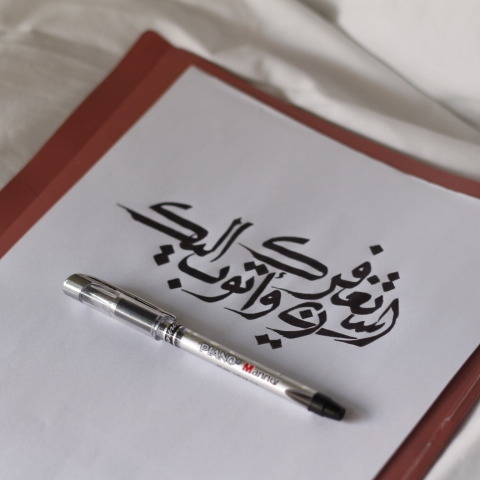 استغفرك ربي وأتوب إليك
PIANO Manna